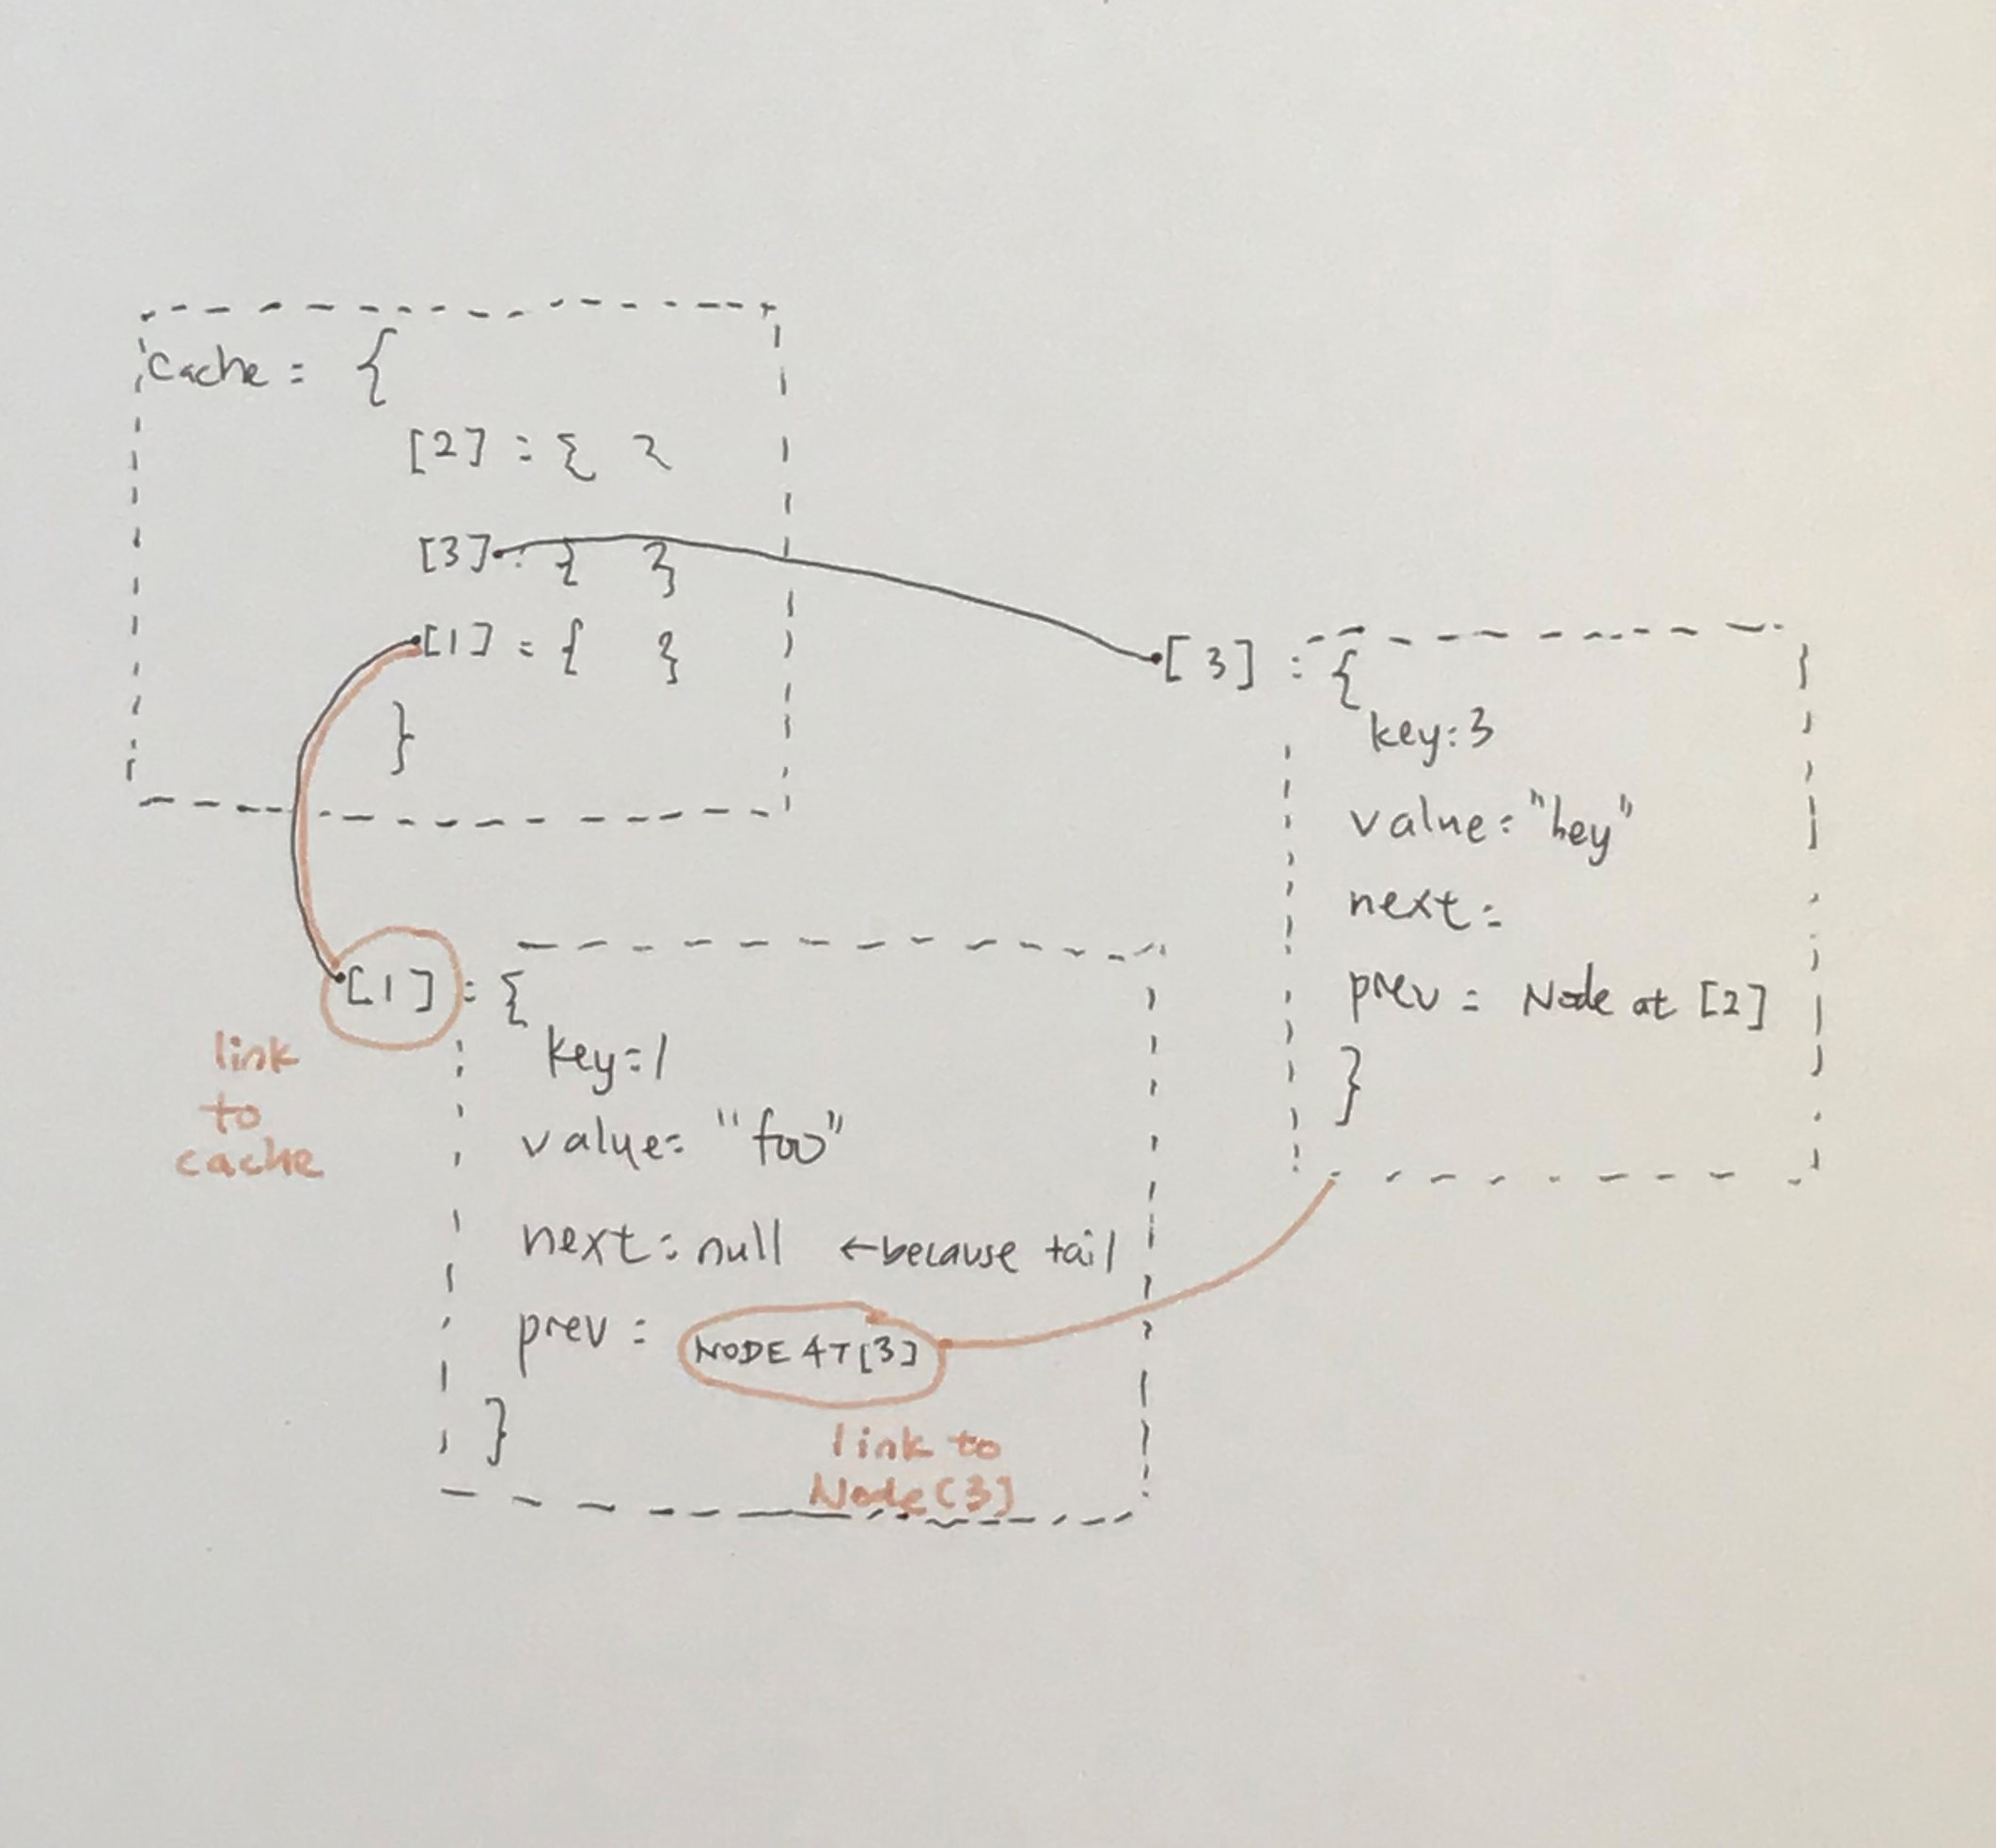 Cache = {
[2] : { }
[3] : { }
[1] : { }
}
[3] : {
key: 3
value: "hey"
next:
prev : Node at [2]
}
[1] : {
link
to
cache
key: 1
value: "foo"
next: null ← because tail
prev : NODE AT [3]
}
link to
Node [3]